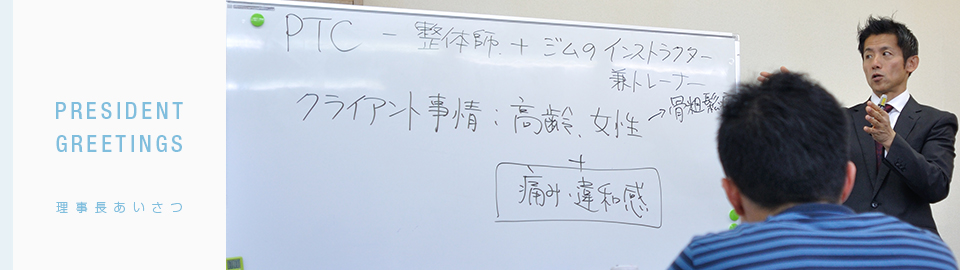 PRESIDENT
GREETINGS
理事長あいさつ
PTC - 整体師 + ジムのインストラクター
兼トレーナー
クライアント事情:高齢、女性 → 骨粗鬆
+
痛み・違和感